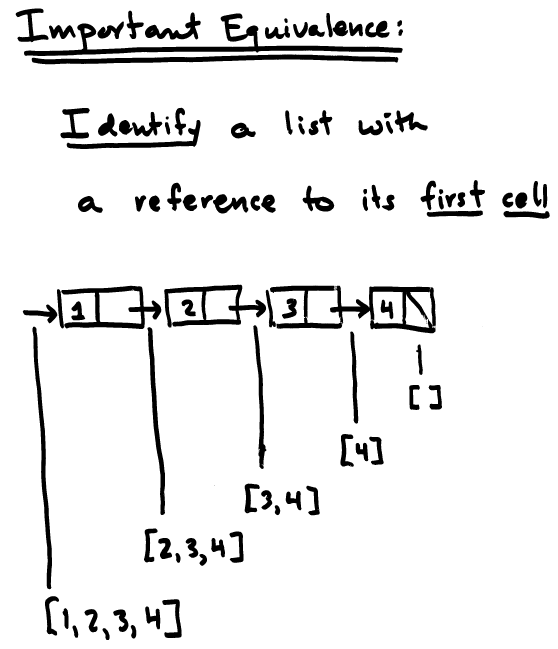 Important Equivalence:
Identify a list with
a reference to its first cell
1 2 3 4
[]
[4]
[3,4]
[2,3,4]
[1,2,3,4]